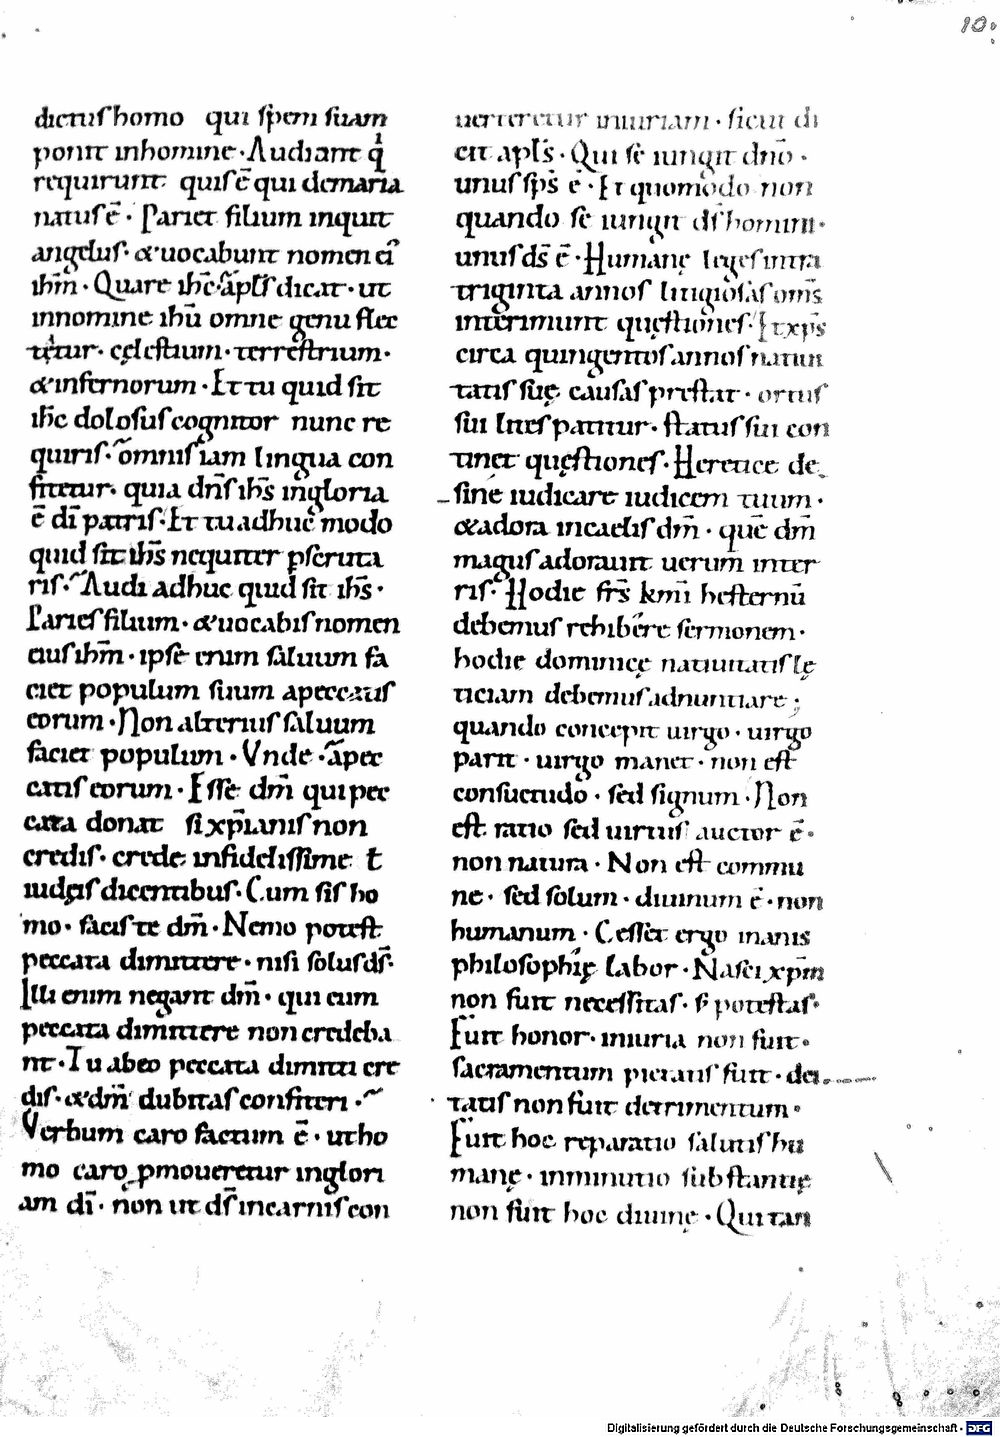 10.
dictus homo qui spem suam
ponit inhomine · Audiant q̇
requirunt quis ē qui demaria
natus ē · Pariet filium inquit
angelus · & uocabunt nomen ei᾽
ih̄m · Quare ih̄c · ap̄ls dicat · ut
innomine ihū omne genu flec
tetur · cęlestium · terrestrium ·
& infernorum · Et tu quid sit
ih̄c dolosus cognitor nunc re
quiris · omnis iam lingua con
fitetur · quia dn̄s ih̄s ingloria
ē dī patris · Et tu adhuc modo
quid sit ih̄s nequiter pscruta
ris · Audi adhuc quid sit ih̄s ·
Paries filium · & uocabis nomen
eius ih̄m · ipse enim saluum fa
ciet populum suum apeccatis
eorum · Non alterius saluum
faciet populum · Vnde · apec
catis eorum · Esse dm̄ qui pec
cata donat si xp̄ianis non
credis · crede infidelissime t
iudęis dicentibus · Cum sis ho
mo · facis te dm̄ · Nemo potest
peccata dimittere · nisi solus ds̄ ·
Illi enim negant dm̄ · qui eum
peccata dimittere non credeba
nt · Tu abeo peccata dimitti cre
dis · & dm̄ dubitas confiteri ·
Verbum caro factum ē · ut ho
mo caro pmoueretur inglori
am dī · non ut ds̄ incarnis con
uerteretur iniuriam · sicut di
cit apls̄ · Qui se iungit dn̄o ·
unus sps̄ ē · Et quomodo non
quando se iungit ds̄ homini ·
unus ds̄ ē · Humanę leges intra
triginta annos litigiosas om̄s
interimunt quęstiones · Et xp̄s
circa quingentos annos natiui
tatis suę causas prestat · ortus
sui lites patitur · status sui con
tinet quęstiones · Heretice de
sine iudicare iudicem tuum ·
& adora incaelis dm̄ · quē dm̄
magus adorauit uerum inter
ris · Hodie frs̄ kmī hesternū
debemus rehibere sermonem ·
hodie dominicę natiuitatis lę
ticiam debemus adnuntiare ;
quando concepit uirgo · uirgo
parit · uirgo manet · non est
consuetudo · sed signum · Non
est ratio sed uirtus auctor ē ·
non natura · Non est commu
ne · sed solum · diuinum ē · non
humanum · Cesset ergo inanis
philosophię labor · Nasci xp̄m
non fuit necessitas · s̄ potestas ·
Fuit honor · iniuria non fuit ·
sacramentum pietatis fuit · dei
tatis non fuit detrimentum ·
Fuit hoc reparatio salutis hu
manę · inminutio substantię
non fuit hoc diuinę · Qui tan
Digitalisierung gefördert durch die Deutsche Forschungsgemeinschaft - DFG